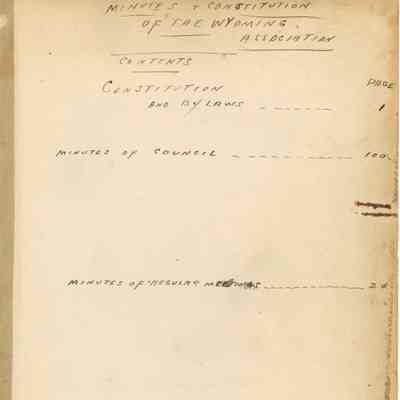 MINUTES & CONSTITUTION
OF THE WYOMING
ASSOCIATION
CONTENTS
PAGE
CONSTITUTION
AND BY LAWS 1
MINUTES OF COUNCIL 100
MINUTES OF REGULAR